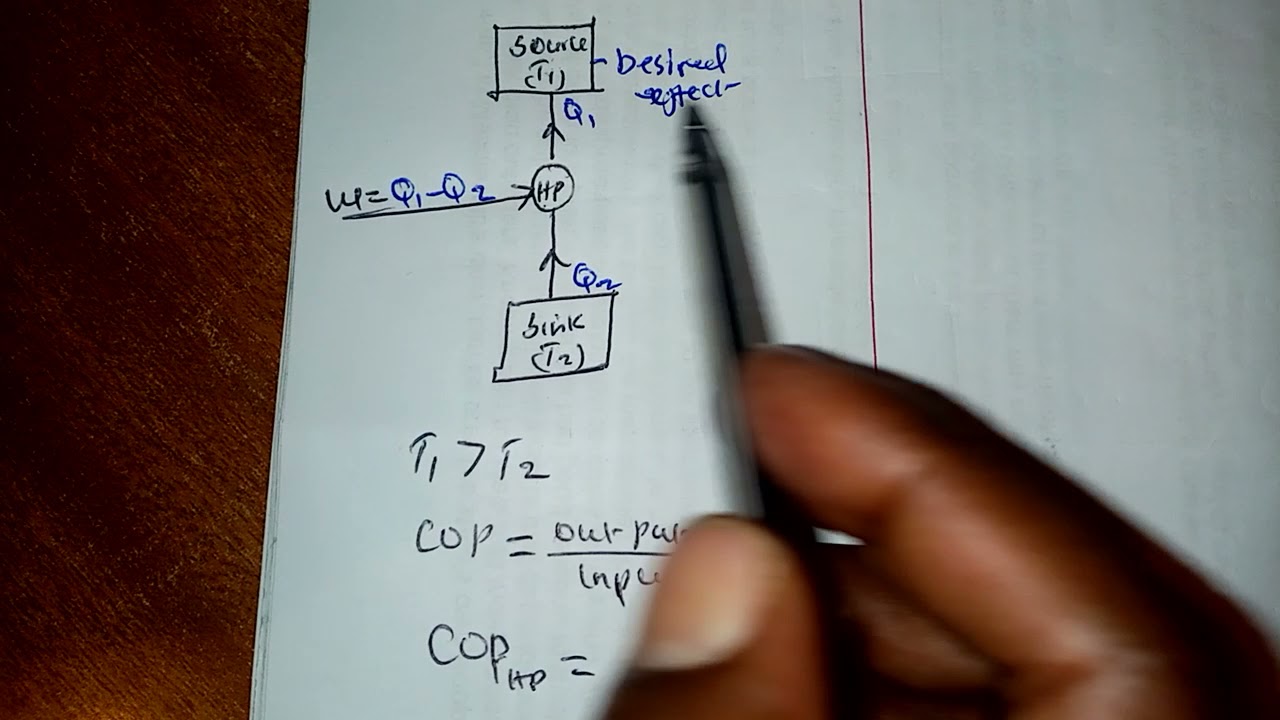 Source
(T1) - Desired
effect
Q1
W = Q1-Q2
HP
Q2
Sink
(T2)
T1 > T2
COP = 
COP HP =